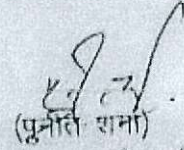 (पुनीत शर्मा)